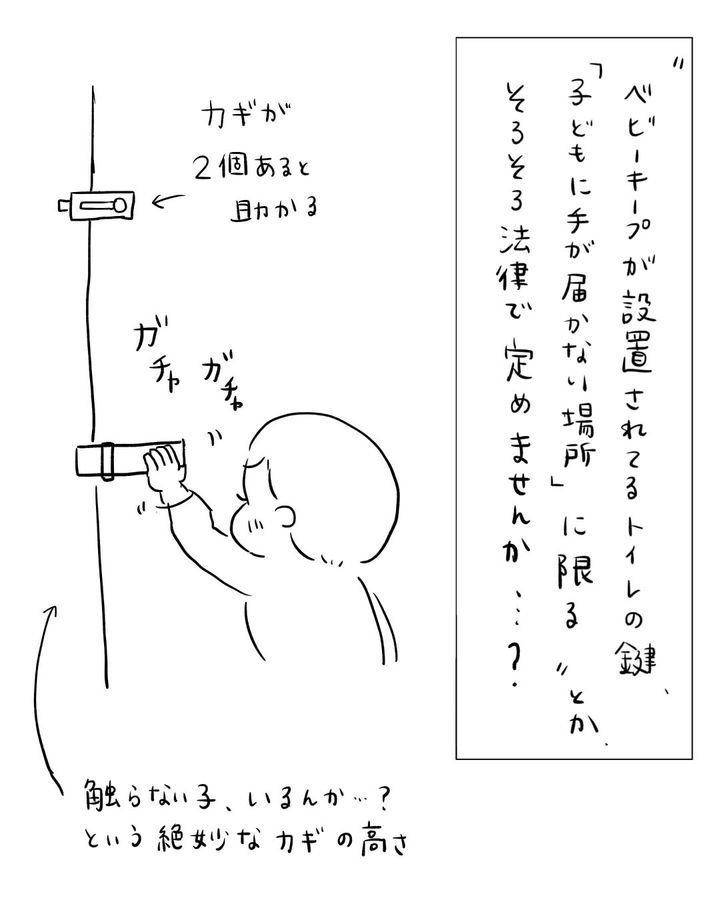 〝ベビーキープが設置されてるトイレの鍵、
「子どもに手が届かない場所」に限る〟とか、
そろそろ法律で定めませんか…?
カギが
2個あると
助かる
ガチャ
ガチャ
触らない子、いるんか…?
という絶妙なカギの高さ